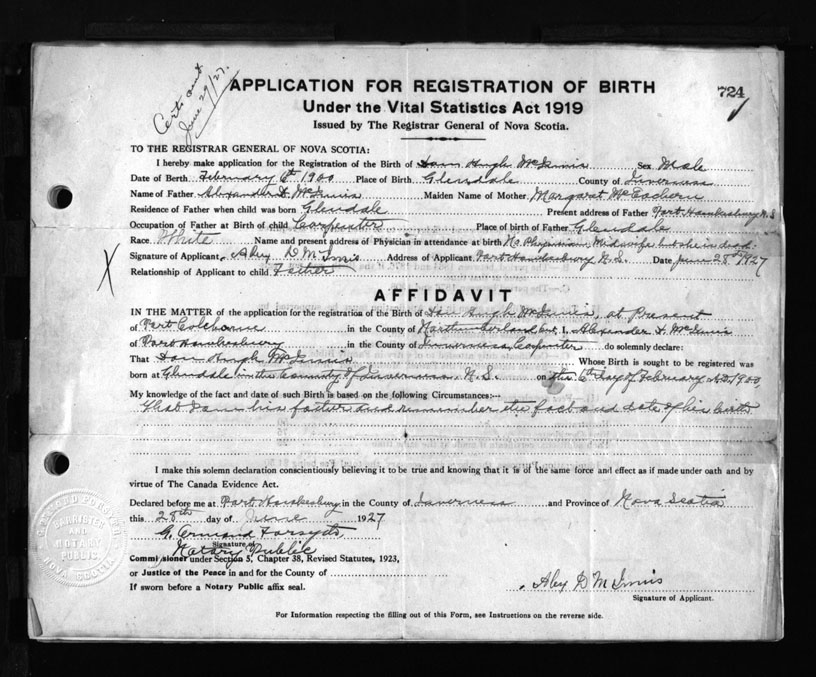 Certs sent
June 29/27.
724
APPLICATION FOR REGISTRATION OF BIRTH
Under the Vital Statistics Act 1919
Issued by The Registrar General of Nova Scotia.
TO THE REGISTRAR GENERAL OF NOVA SCOTIA:
I hereby make application for the Registration of the Birth of Dan Hugh McInnis Sex Male
Date of Birth February 6th 1900 Place of Birth Glendale County of Inverness
Name of Father Alexander D. McInnis Maiden Name of Mother Margaret McEachern
Residence of Father when child was born Glendale Present address of Father Port Hawkesbury N.S
Occupation of Father at Birth of child Carpenter Place of birth of Father Glendale
Race White Name and present address of Physician in attendance at birth No Physician Midwife but she is dead.
Signature of Applicant Alex D McInnis Address of Applicant Port Hawkesbury N.S. Date June 28th 1927
Relationship of Applicant to child Father
X
AFFIDAVIT
IN THE MATTER of the application for the registration of the Birth of Dan Hugh McInnis, at Present
of Port Colborne in the County of Northumberland Ont. I, Alexander D. McInnis
of Port Hawkesbury in the County of Inverness, Carpenter do solemnly declare:
That Dan Hugh McInnis Whose Birth is sought to be registered was
born at Glendale in the County of Inverness, N.S. on the 6th day of February A.D. 1900
My knowledge of the fact and date of such Birth is based on the following Circumstances:—
That I am his father and remember the fact and date of his birth
I make this solemn declaration conscientiously believing it to be true and knowing that it is of the same force and effect as if made under oath and by
virtue of The Canada Evidence Act.
Declared before me at Port Hawkesbury in the County of Inverness and Province of Nova Scotia
this 28th day of June 1927
G. Ormand Forsyth
Signature of
Notary Public
Commissioner under Section 5, Chapter 38, Revised Statutes, 1923,
or Justice of the Peace in and for the County of
If sworn before a Notary Public affix seal.
Alex D McInnis
Signature of Applicant.
For Information respecting the filling out of this Form, see Instructions on the reverse side.
BARRISTER
AND
NOTARY
PUBLIC
NOVA SCOTIA